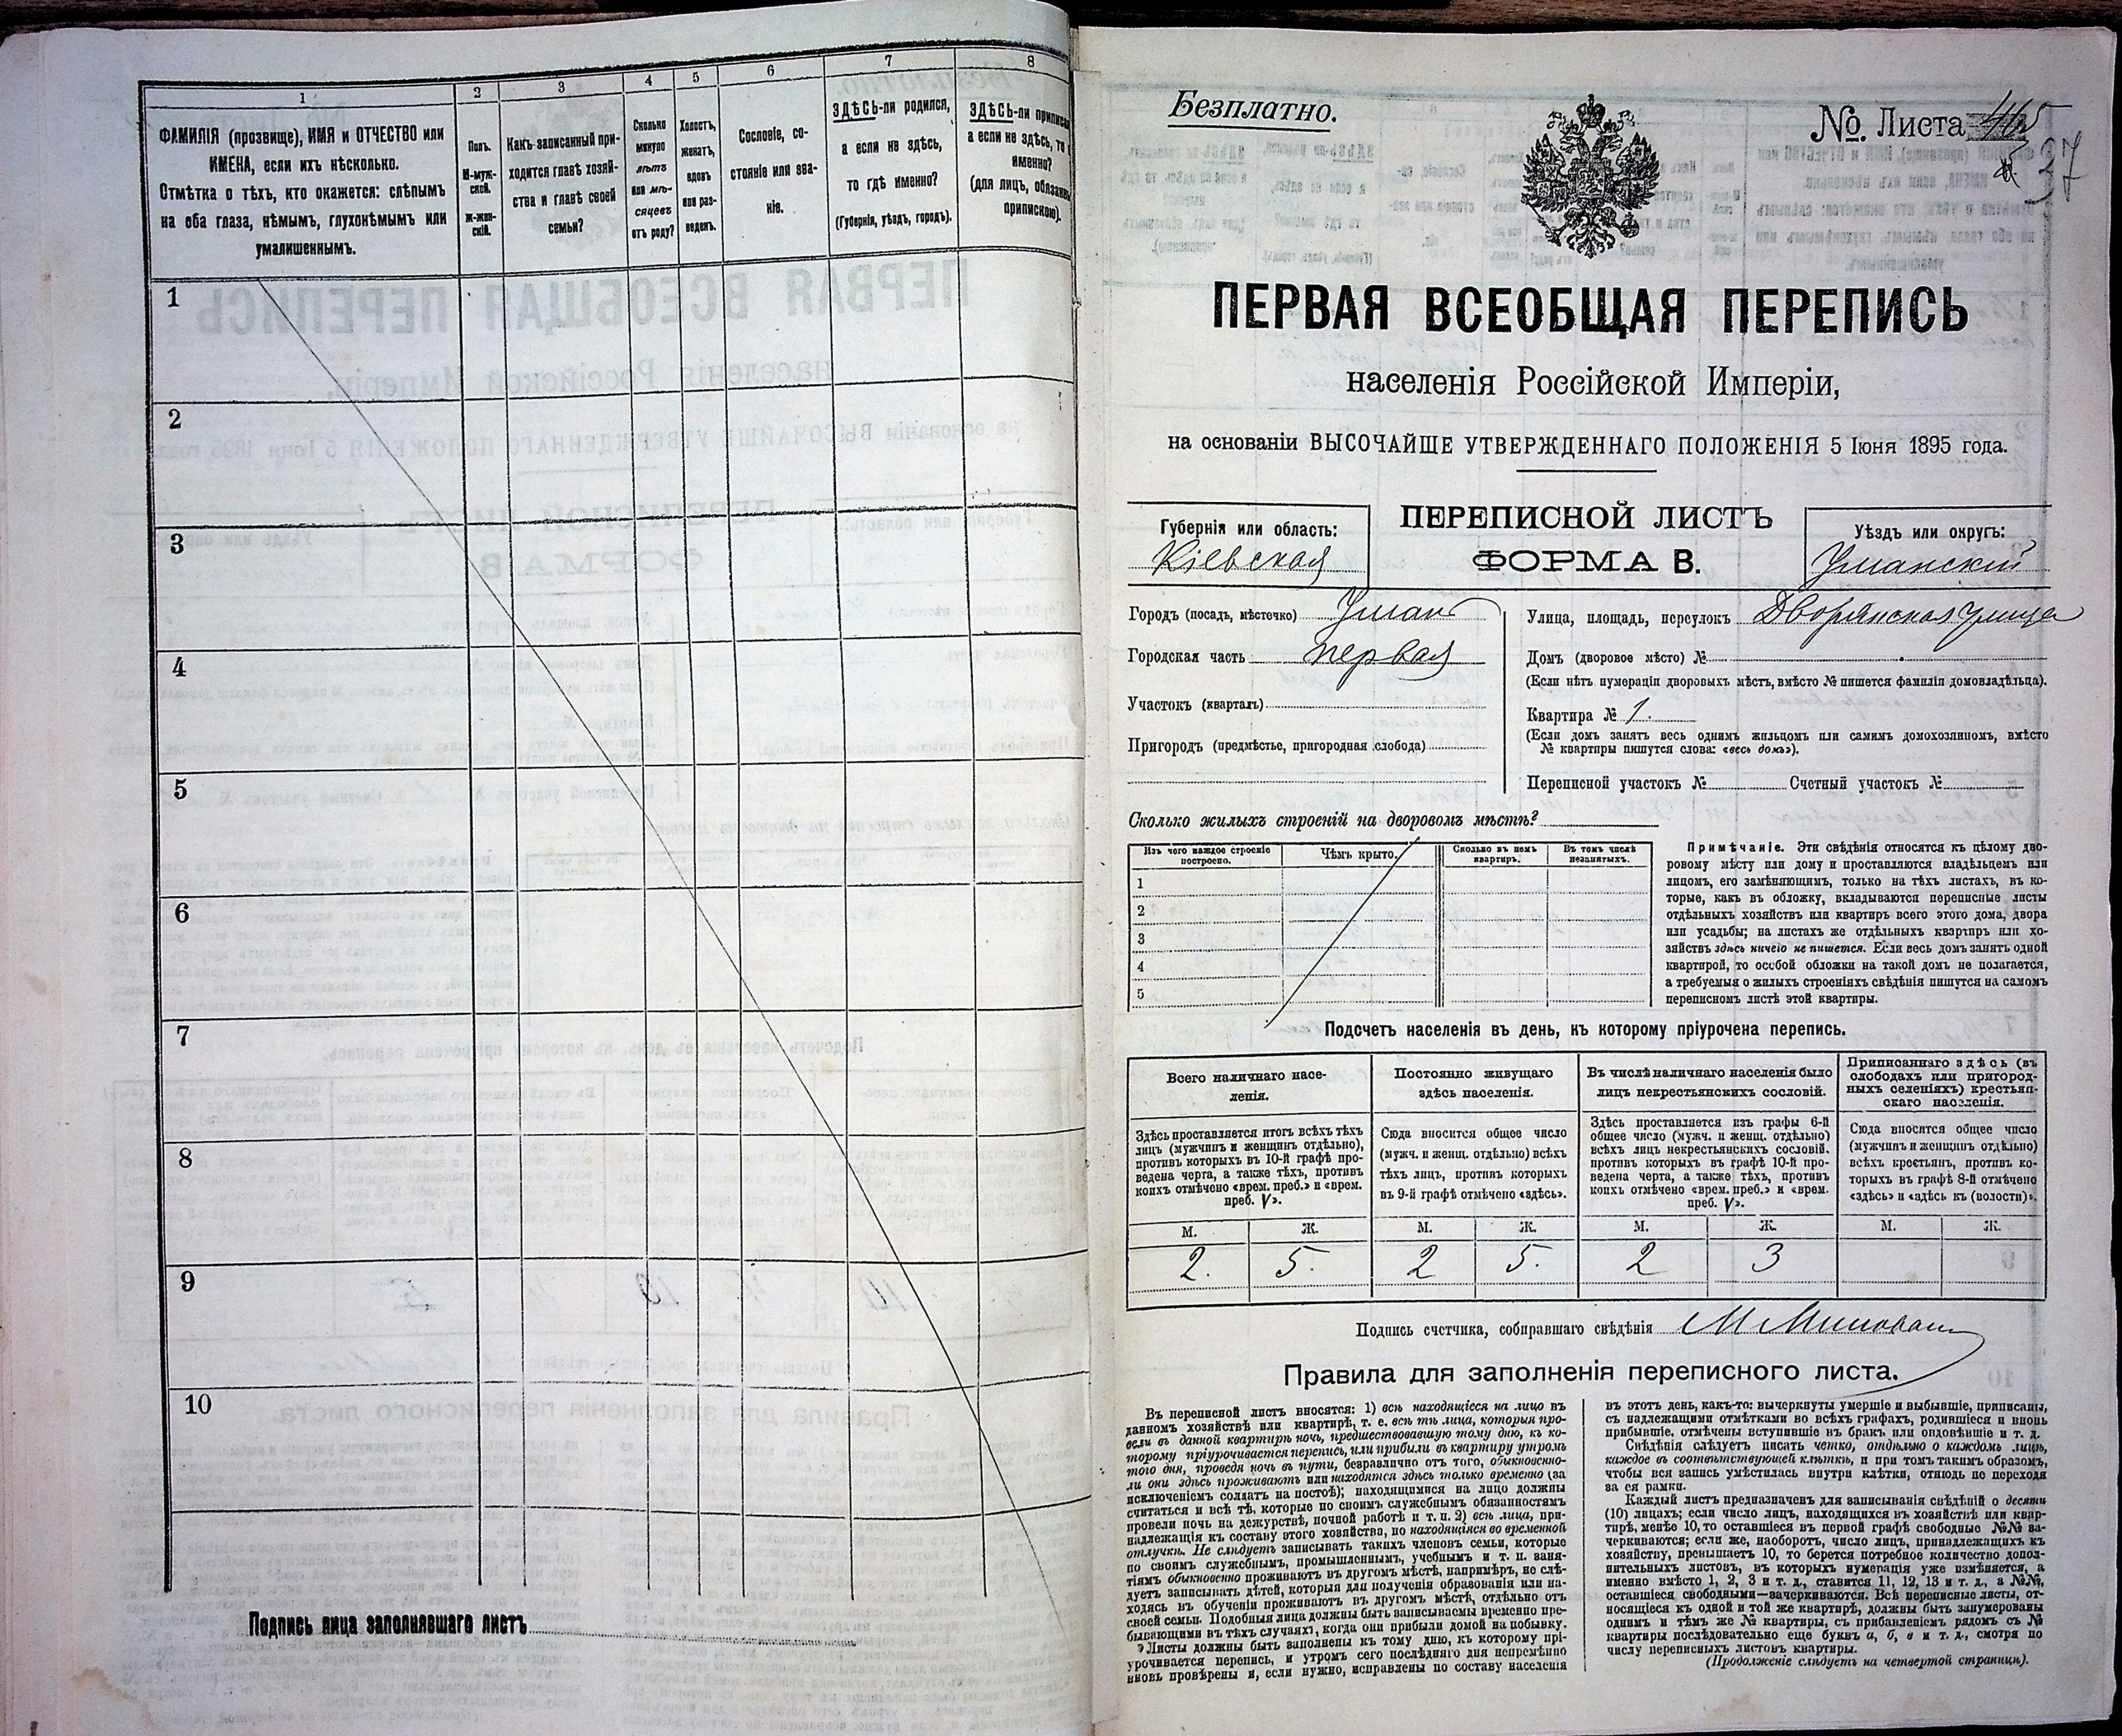 1
2
3
4
5
6
7
8
ФАМИЛІЯ (прозвище), ИМЯ и ОТЧЕСТВО или
ИМЕНА, если ихъ нѣсколько.
Отмѣтка о тѣхъ, кто окажется: слѣпымъ
на оба глаза, нѣмымъ, глухонѣмымъ или
умалишеннымъ.
Полъ.
М-муж-
ской.
Ж-жен-
скій.
Какъ записанный при-
ходится главѣ хозяй-
ства и главѣ своей
семьи?
Сколько
минуло
лѣтъ
или мѣ-
сяцевъ
отъ роду?
Холостъ,
женатъ,
вдовъ
или раз-
веденъ.
Сословіе, со-
стояніе или зва-
ніе.
ЗДѢСЬ-ли родился,
а если не здѣсь,
то гдѣ именно?
(Губернія, уѣздъ, городъ).
ЗДѢСЬ-ли
а если не здѣсь, то
именно?
(для лицъ,
припискою).
1
2
3
4
5
6
7
8
9
10
Подпись лица заполнявшаго листъ
Безплатно.
№. Листа
37
ПЕРВАЯ ВСЕОБЩАЯ ПЕРЕПИСЬ
населенія Россійской Имперіи,
на основаніи ВЫСОЧАЙШЕ УТВЕРЖДЕННАГО ПОЛОЖЕНІЯ 5 Іюня 1895 года.
Губернія или область:
Кіевская
ПЕРЕПИСНОЙ ЛИСТЪ
ФОРМА В.
Уѣздъ или округъ:
Уманскій
Городъ (посадъ, мѣстечко) Умань
Городская часть первая
Участокъ (кварталъ)
Пригородъ (предмѣстье, пригородная слобода)
Улица, площадь, переулокъ Дворянская улица
Домъ (дворовое мѣсто) №
(Если нѣтъ нумераціи дворовыхъ мѣстъ, вмѣсто № пишется фамилія домовладѣльца).
Квартира № 1.
(Если домъ занятъ весь однимъ жильцомъ или самимъ домохозяиномъ, вмѣсто
№ квартиры пишутся слова: «весь домъ»).
Переписной участокъ № Счетный участокъ №
Сколько жилыхъ строеній на дворовомъ мѣстѣ?
Изъ чего каждое строеніе
построено.
Чѣмъ крыто.
Сколько въ немъ
квартиръ.
Въ томъ числѣ
незанятыхъ.
1
2
3
4
5
Примѣчаніе. Эти свѣдѣнія относятся къ цѣлому дво-
ровому мѣсту или дому и проставляются владѣльцемъ или
лицомъ, его замѣняющимъ, только на тѣхъ листахъ, въ ко-
торые, какъ въ обложку, вкладываются переписные листы
отдѣльныхъ хозяйствъ или квартиръ всего этого дома, двора
или усадьбы; на листахъ же отдѣльныхъ квартиръ или хо-
зяйствъ здѣсь ничего не пишется. Если весь домъ занятъ одной
квартирой, то особой обложки на такой домъ не полагается,
а требуемыя о жилыхъ строеніяхъ свѣдѣнія пишутся на самомъ
переписномъ листѣ этой квартиры.
Подсчетъ населенія въ день, къ которому пріурочена перепись.
Всего наличнаго насе-
ленія.
Постоянно живущаго
здѣсь населенія.
Въ числѣ наличнаго населенія было
лицъ некрестьянскихъ сословій.
Приписаннаго здѣсь (въ
слободахъ или пригород-
ныхъ селеніяхъ) крестьян-
скаго населенія.
Здѣсь проставляется итогъ всѣхъ тѣхъ
лицъ (мужчинъ и женщинъ отдѣльно),
противъ которыхъ въ 10-й графѣ про-
ведена черта, а также тѣхъ, противъ
коихъ отмѣчено «врем. преб.» и «врем.
преб. V».
Сюда вносится общее число
(мужч. и женщ. отдѣльно) всѣхъ
тѣхъ лицъ, противъ которыхъ
въ 9-й графѣ отмѣчено «здѣсь».
Здѣсь проставляется изъ графы 6-й
общее число (мужч. и женщ. отдѣльно)
всѣхъ лицъ некрестьянскихъ сословій.
противъ которыхъ въ графѣ 10-й про-
ведена черта, а также тѣхъ, противъ
коихъ отмѣчено «врем. преб.» и «врем.
преб. V».
Сюда вносится общее число
(мужчинъ и женщинъ отдѣльно)
всѣхъ крестьянъ, противъ ко-
торыхъ въ графѣ 8-й отмѣчено
«здѣсь» и «здѣсь къ (волости)».
М. Ж. М. Ж. М. Ж. М. Ж.
2. 5. 2 5. 2 3
Подпись счетчика, собиравшаго свѣдѣнія
Правила для заполненія переписного листа.
Въ переписной листъ вносятся: 1) всѣ находящіеся на лицо въ
данномъ хозяйствѣ или квартирѣ, т. е. всѣ тѣ лица, которыя про-
вели въ данной квартирѣ ночь, предшествовавшую тому дню, къ ко-
торому пріурочивается перепись, или прибыли въ квартиру утромъ
того дня, проведя ночь въ пути, безразлично отъ того, обыкновенно-
ли они здѣсь проживаютъ или находятся здѣсь только временно (за
исключеніемъ солдатъ на постоѣ); находящимися на лицо должны
считаться и всѣ тѣ, которые по своимъ служебнымъ обязанностямъ
провели ночь на дежурствѣ, ночной работѣ и т. п. 2) всѣ лица, при-
надлежащія къ составу этого хозяйства, но находящіяся во временной
отлучкѣ. Не слѣдуетъ записывать такихъ членовъ семьи, которые
по своимъ служебнымъ, промышленнымъ, учебнымъ и т. п. заня-
тіямъ обыкновенно проживаютъ въ другомъ мѣстѣ, напримѣръ, не слѣ-
дуетъ записывать дѣтей, которыя для полученія образованія или на-
ходясь въ обученіи проживаютъ въ другомъ мѣстѣ, отдѣльно отъ
своей семьи. Подобныя лица должны быть записываемы временно пре-
бывающими въ тѣхъ случаяхъ, когда они прибыли домой на побывку.
Листы должны быть заполнены къ тому дню, къ которому прі-
урочивается перепись, и утромъ сего послѣдняго дня непремѣнно
вновь провѣрены и, если нужно, исправлены по составу населенія
въ этотъ день, какъ-то: вычеркнуты умершіе и выбывшіе, приписаны,
съ надлежащими отмѣтками во всѣхъ графахъ, родившіеся и вновь
прибывшіе, отмѣчены вступившіе въ бракъ или овдовѣвшіе и т. д.
Свѣдѣнія слѣдуетъ писать четко, отдѣльно о каждомъ лицѣ,
каждое въ соотвѣтствующей клѣткѣ, и при томъ такимъ образомъ,
чтобы вся запись умѣстилась внутри клѣтки, отнюдь не переходя
за ея рамки.
Каждый листъ предназначенъ для записыванія свѣдѣній о десяти
(10) лицахъ; если число лицъ, находящихся въ хозяйствѣ или квар-
тирѣ, менѣе 10, то оставшіеся въ первой графѣ свободные №№ за-
черкиваются; если же, наоборотъ, число лицъ, принадлежащихъ къ
хозяйству, превышаетъ 10, то берется потребное количество допол-
нительныхъ листовъ, въ которыхъ нумерація уже измѣняется, а
именно вмѣсто 1, 2, 3 и т. д., ставится 11, 12, 13 и т. д., а №№,
оставшіеся свободными—вачеркиваются. Всѣ переписные листы, от-
носящіеся къ одной и той же квартирѣ, должны быть занумерованы
однимъ и тѣмъ же № квартиры, съ прибавленіемъ рядомъ съ №
квартиры послѣдовательно еще буквъ а, б, в и т. д., смотря по
числу переписныхъ листовъ квартиры.
(Продолженіе слѣдуетъ на четвертой страницѣ).